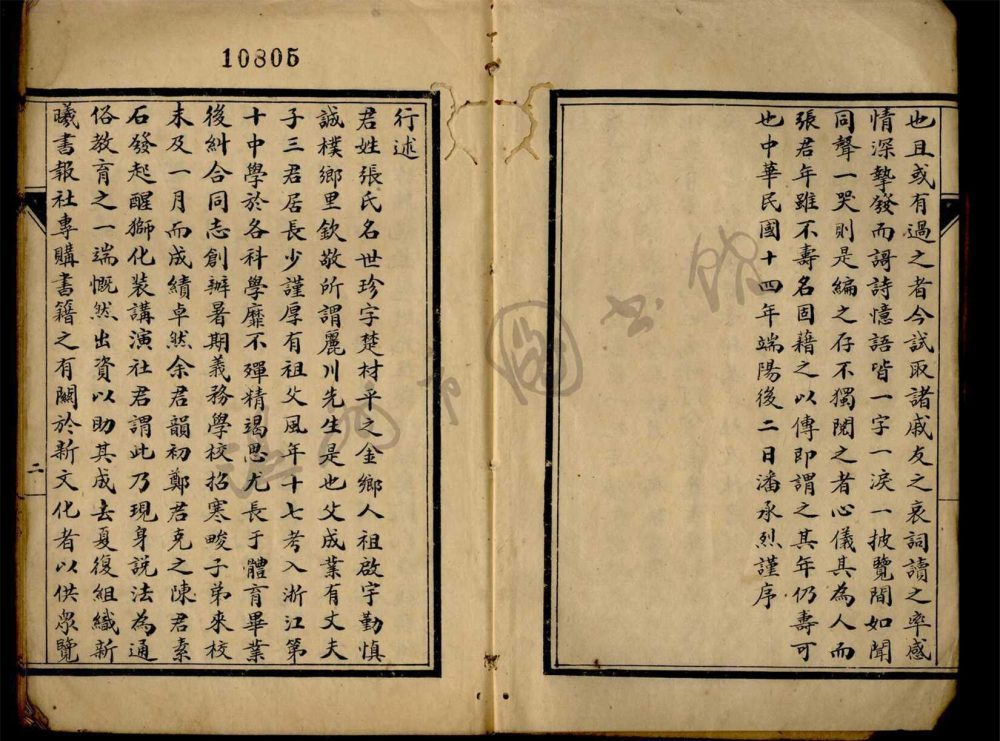 也且或有過之者今試取諸戚友之哀詞讀之率感
情深摯發而謌詩憶語皆一字一淚一披覽間如聞
同聲一哭則是編之存不獨閱之者心儀其為人而
張君年雖不壽名固藉之以傳即謂之其年仍壽可
也中華民國十四年端陽後二日潘承烈謹序
10805
行述
君姓張氏名世珍字楚材平之金鄉人祖啟宇勤慎
誠樸鄉里欽敬所謂麗川先生是也父成業有丈夫
子三君居長少謹厚有祖父風年十七考入浙江第
十中學於各科學靡不殫精竭思尤長于體育畢業
後糾合同志創辦暑期義務學校招寒畯子弟來校
未及一月而成績卓然余君韻初鄭君克之陳君素
石發起醒獅化裝講演社君謂此乃現身說法為通
俗教育之一端慨然出資以助其成去夏復組織新
曦書報社專購書籍之有關於新文化者以供眾覽
二
圖書館